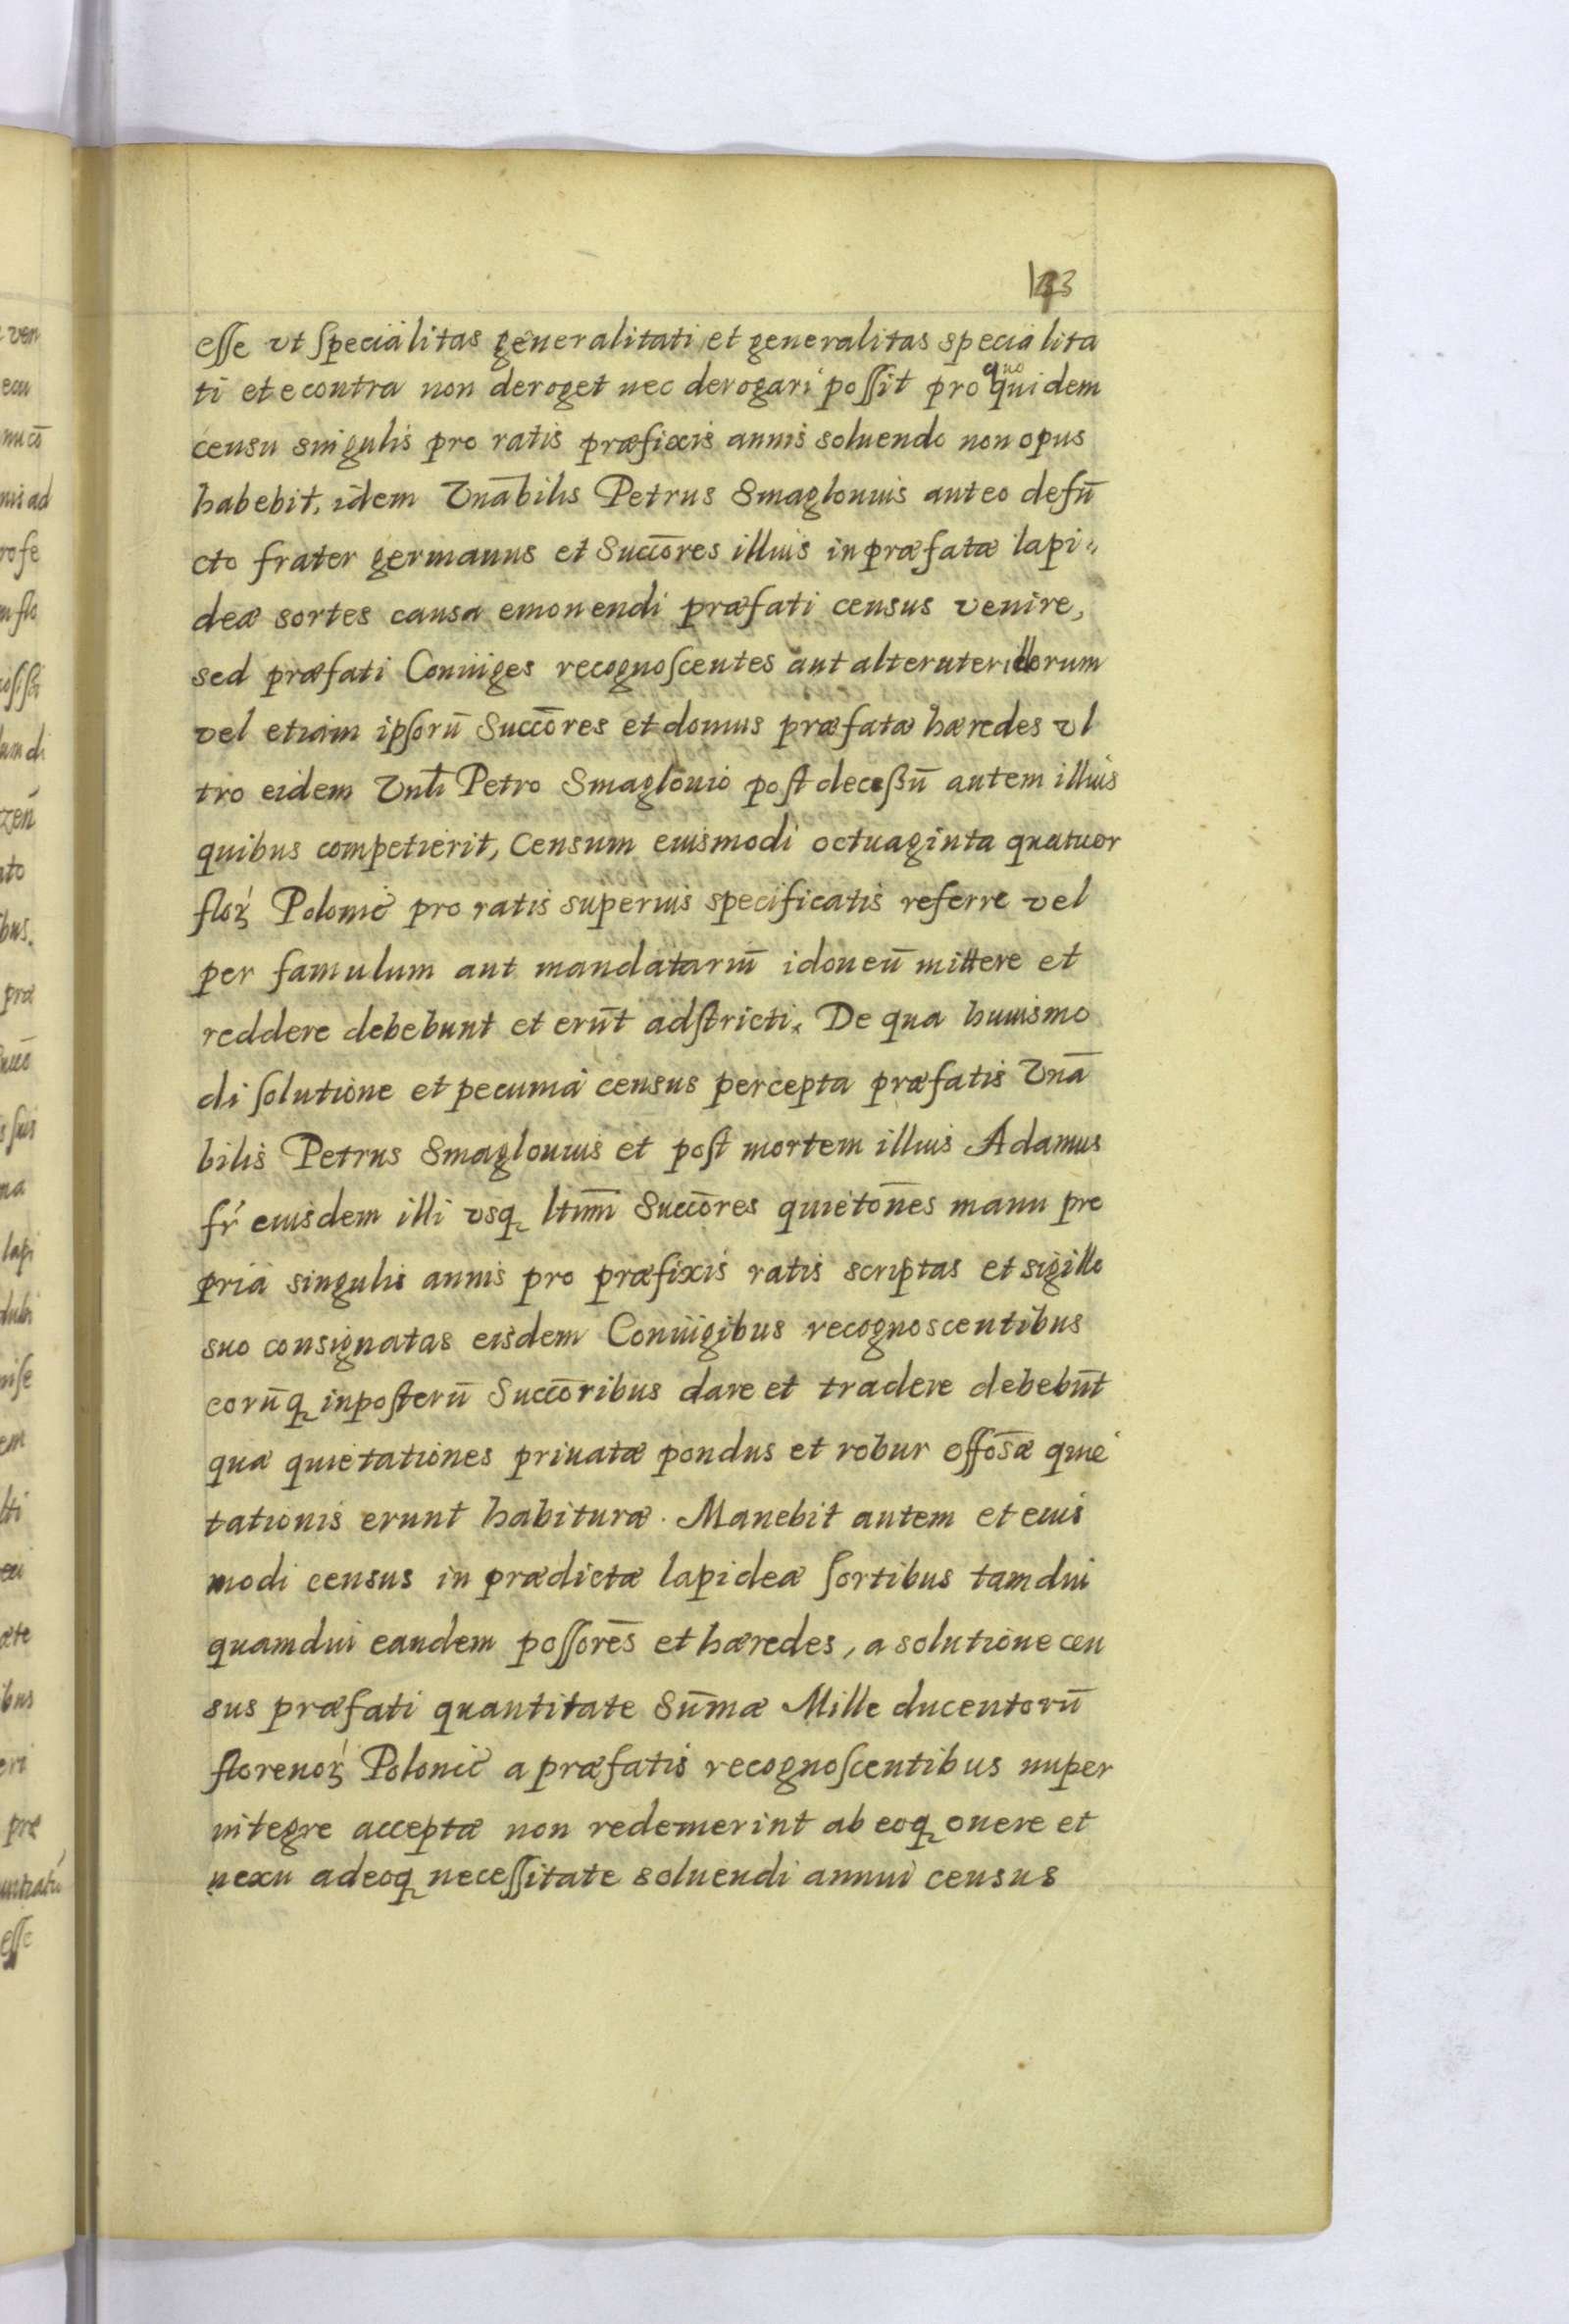 133
esse vt specialitas generalitati et generalitas specialita
ti et e contra non deroget nec derogari possit pro quo quidem
censu singulis pro ratis præfixis annis soluendo non opus
habebit, idem Vnābilis Petrus Smaglouius aut eo defū
cto frater germanus et Succōres illius in præfatæ lapi„
deæ sortes causa emonendi præfati census venire,
sed præfati Coniuges recognoscentes aut alteruter illorum
vel etiam ipsorū Succōres et domus præfatæ hæredes vl
tro eidem Vnli Petro Smaglouio post decessū autem illius
quibus competierit, Censum eiusmodi octuaginta quatuor
floꝝ Polonic pro ratis superius specificatis referre vel
per famulum aut mandatariū idoneū mittere et
reddere debebunt et erūt adstricti. De qua huiusmo
di solutione et pecunia census percepta præfatis Vnā
bilis Petrus Smaglouius et post mortem illius Adamus
fr eiusdem illi vsqꝫ ltimi Succōres quietōnes manu pro
pria singulis annis pro præfixis ratis scriptas et sigillo
suo consignatas eisdem Coniugibus recognoscentibus
eorūqꝫ inposterū Succōribus dare et tradere debebūt
quæ quietationes priuatæ pondus et robur offōsæ quie
tationis erunt habituræ. Manebit autem et eius
modi census in prædictæ lapideæ sortibus tamdiu
quamdiu eandem possorēs et hæredes, a solutione cen
sus præfati quantitate Sūmæ Mille ducentorū
florenoꝝ Polonic a præfatis recognoscentibus nuper
integre acceptæ non redemerint ab eoqꝫ onere et
nexu adeoqꝫ necessitate soluendi annui census